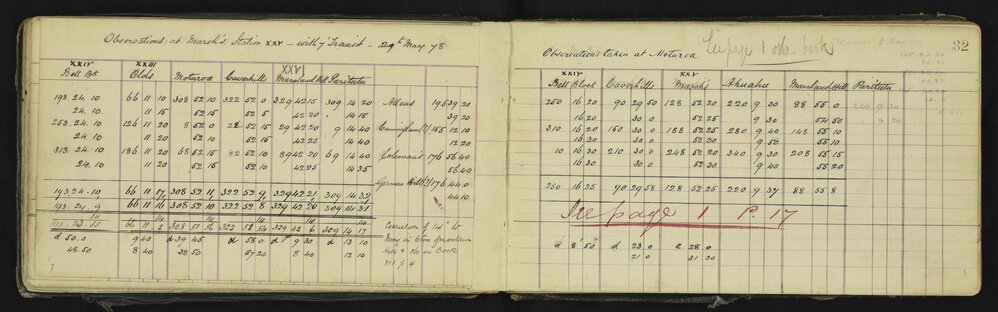 Observations at Marsh's Station XXV - with 7" Transit - 29th May 78
XXIV XXIII XXVI
Bell Bk Olds Moturoa Cavehills Marsland Hill Paritutu
193 24 10 66 11 10 308 52 10 322 52 0 329 42 15 309 14 20 195 39 20
24 10 11 15 52 15 52 5 42 20 14 15 39 20
253 24 10 126 11 20 8 52 0 29 42 20 9 14 40 155 12 10
24 10 11 20 52 10 52 15 42 25 14 40 12 20
313 24 10 186 11 20 68 52 15 82 52 10 89 42 20 69 14 40 Coleman's 176 56 40
24 10 11 20 52 15 52 10 42 25 14 35 56 40
44 0
193 24 10 66 11 17 308 52 11 322 52 9 329 42 21 309 14 32 44 10
193 24 9 66 11 16 308 52 10 322 52 8 329 42 20 309 14 31
14 14 14 14 14
329 42 6 309 14 17 Correction of 14" to
d 50 0 9 40 d 39 45 d 58 0 d 9 30 d 13 10
48 50 8 40 38 50 57 20 8 40 12 10 in Book
See page 1 other book
32
Observations taken at Moturoa
XXIV XXV
Bell Block Cavehills Marsh's Ahuahu Marsland Hill Paritutu
250 16 20 90 29 50 128 52 20 220 9 30 88 55 0
16 20 30 0 52 25 9 30 54 50
310 16 20 150 30 0 188 52 25 280 9 40 148 55 10
16 30 30 0 52 30 9 50 55 10
10 16 30 210 30 0 248 52 20 340 9 30 208 55 15
16 30 30 0 52 30 9 40 55 20
250 16 25 90 29 58 128 52 25 220 9 37 88 55 8
See page 1 P. 17
d 8 50" d 23 0 d 28 0
21 0 31 30